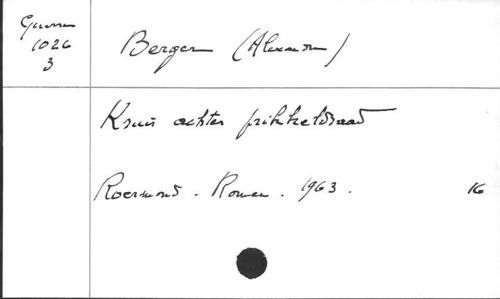 Guerre
1026
3
Berger (Alexandre)
Kruis achter prikkeldraad
Roermond. Romen. 1963. 16